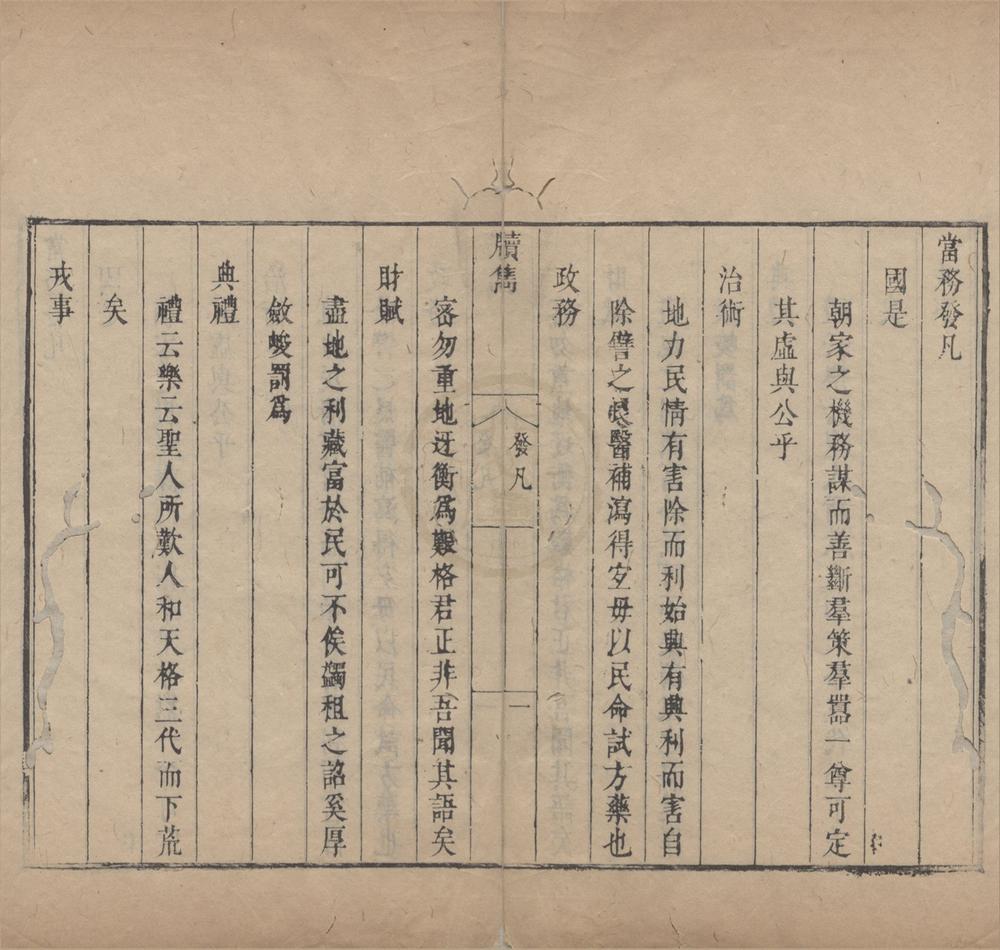 當務發凡
國是
朝家之機務謀而善斷羣策羣囂一尊可定
其虛與公乎
治術
地力民情有害除而利始興有興利而害自
除譬之良醫補瀉得宜毋以民命試方藥也
政務
牘雋
發凡
一
密勿重地迓衡爲艱格君正非吾聞其語矣
財賦
盡地之利藏富於民可不俟蠲租之詔奚厚
斂峻罰爲
典禮
禮云樂云聖人所歎人和天格三代而下荒
矣
戎事